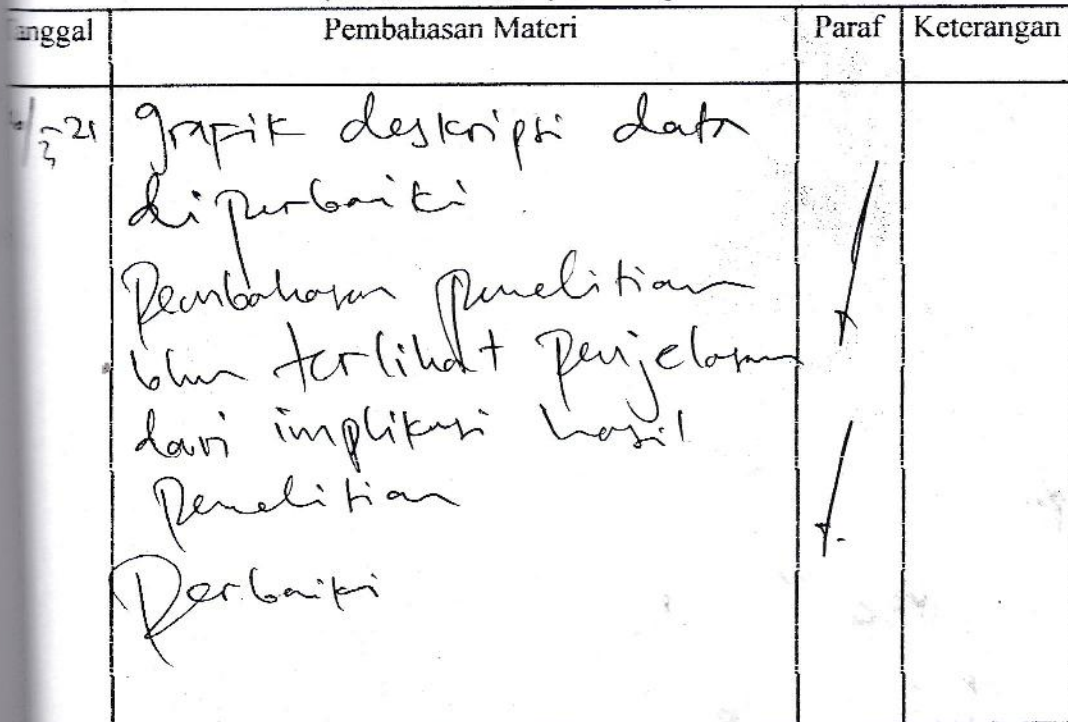 anggal Pembahasan Materi Paraf Keterangan
/3-21 grafik deskripsi data
diperbaiki
Pembahasan penelitian
blm terlihat penjelasan
dari implikasi hasil
Penelitian
Perbaiki